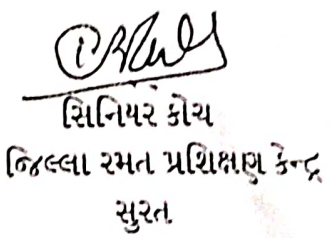 સિનિયર કોચ
જિલ્લા રમત પ્રશિક્ષણ કેન્દ્ર
સુરત